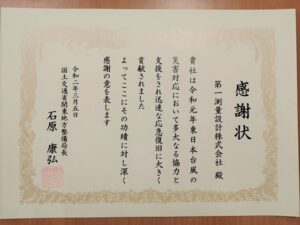 感謝状
第一測量設計株式会社 殿
貴社は令和元年東日本台風の
災害対応において多大なる協力と
支援をされ迅速な応急復旧に大きく
貢献されました
よってここにその功績に対し深く
感謝の意を表します
令和二年三月五日
国土交通省関東地方整備局長
石原 康弘